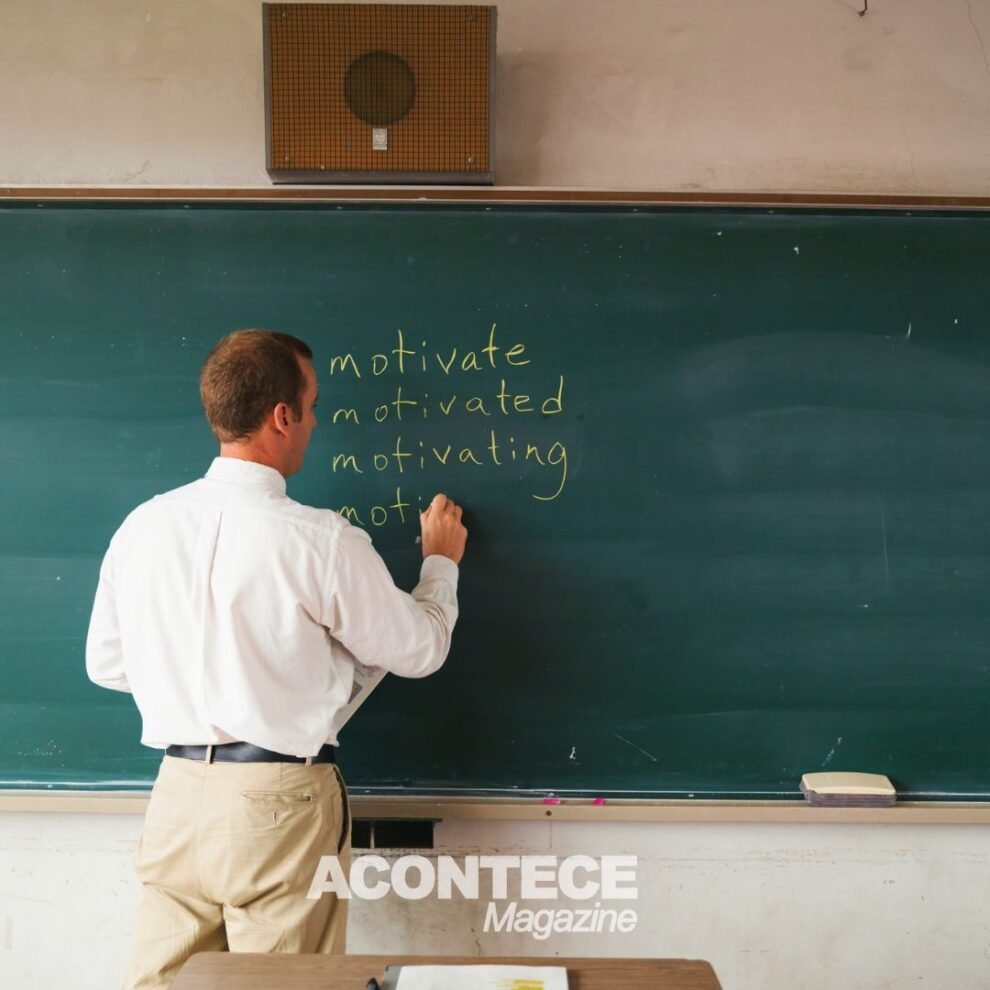 motivate
motivated
motivating
moti
ACONTECE
Magazine